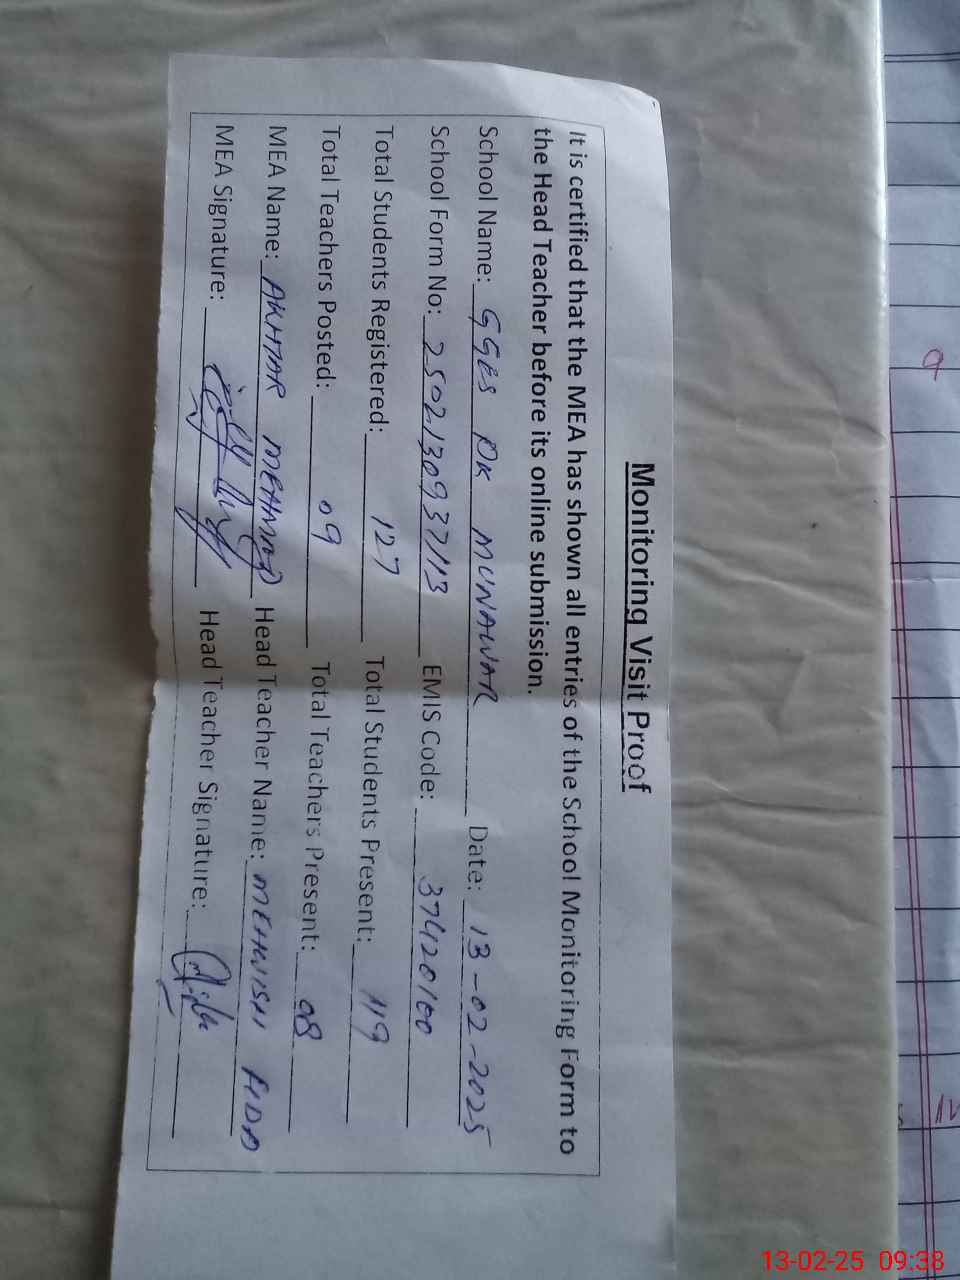 Monitoring Visit Proof
It is certified that the MEA has shown all entries of the School Monitoring Form to
the Head Teacher before its online submission.
School Name: GGES DK MUNAWAR Date: 13-02-2025
School Form No: 2502130937113 EMIS Code: 37420100
Total Students Registered: 127 Total Students Present: 119
Total Teachers Posted: 09 Total Teachers Present: 08
MEA Name: AKHTAR MEHMOOD Head Teacher Name: MEHWISH FIDA
MEA Signature: Head Teacher Signature:
13-02-25 09:38